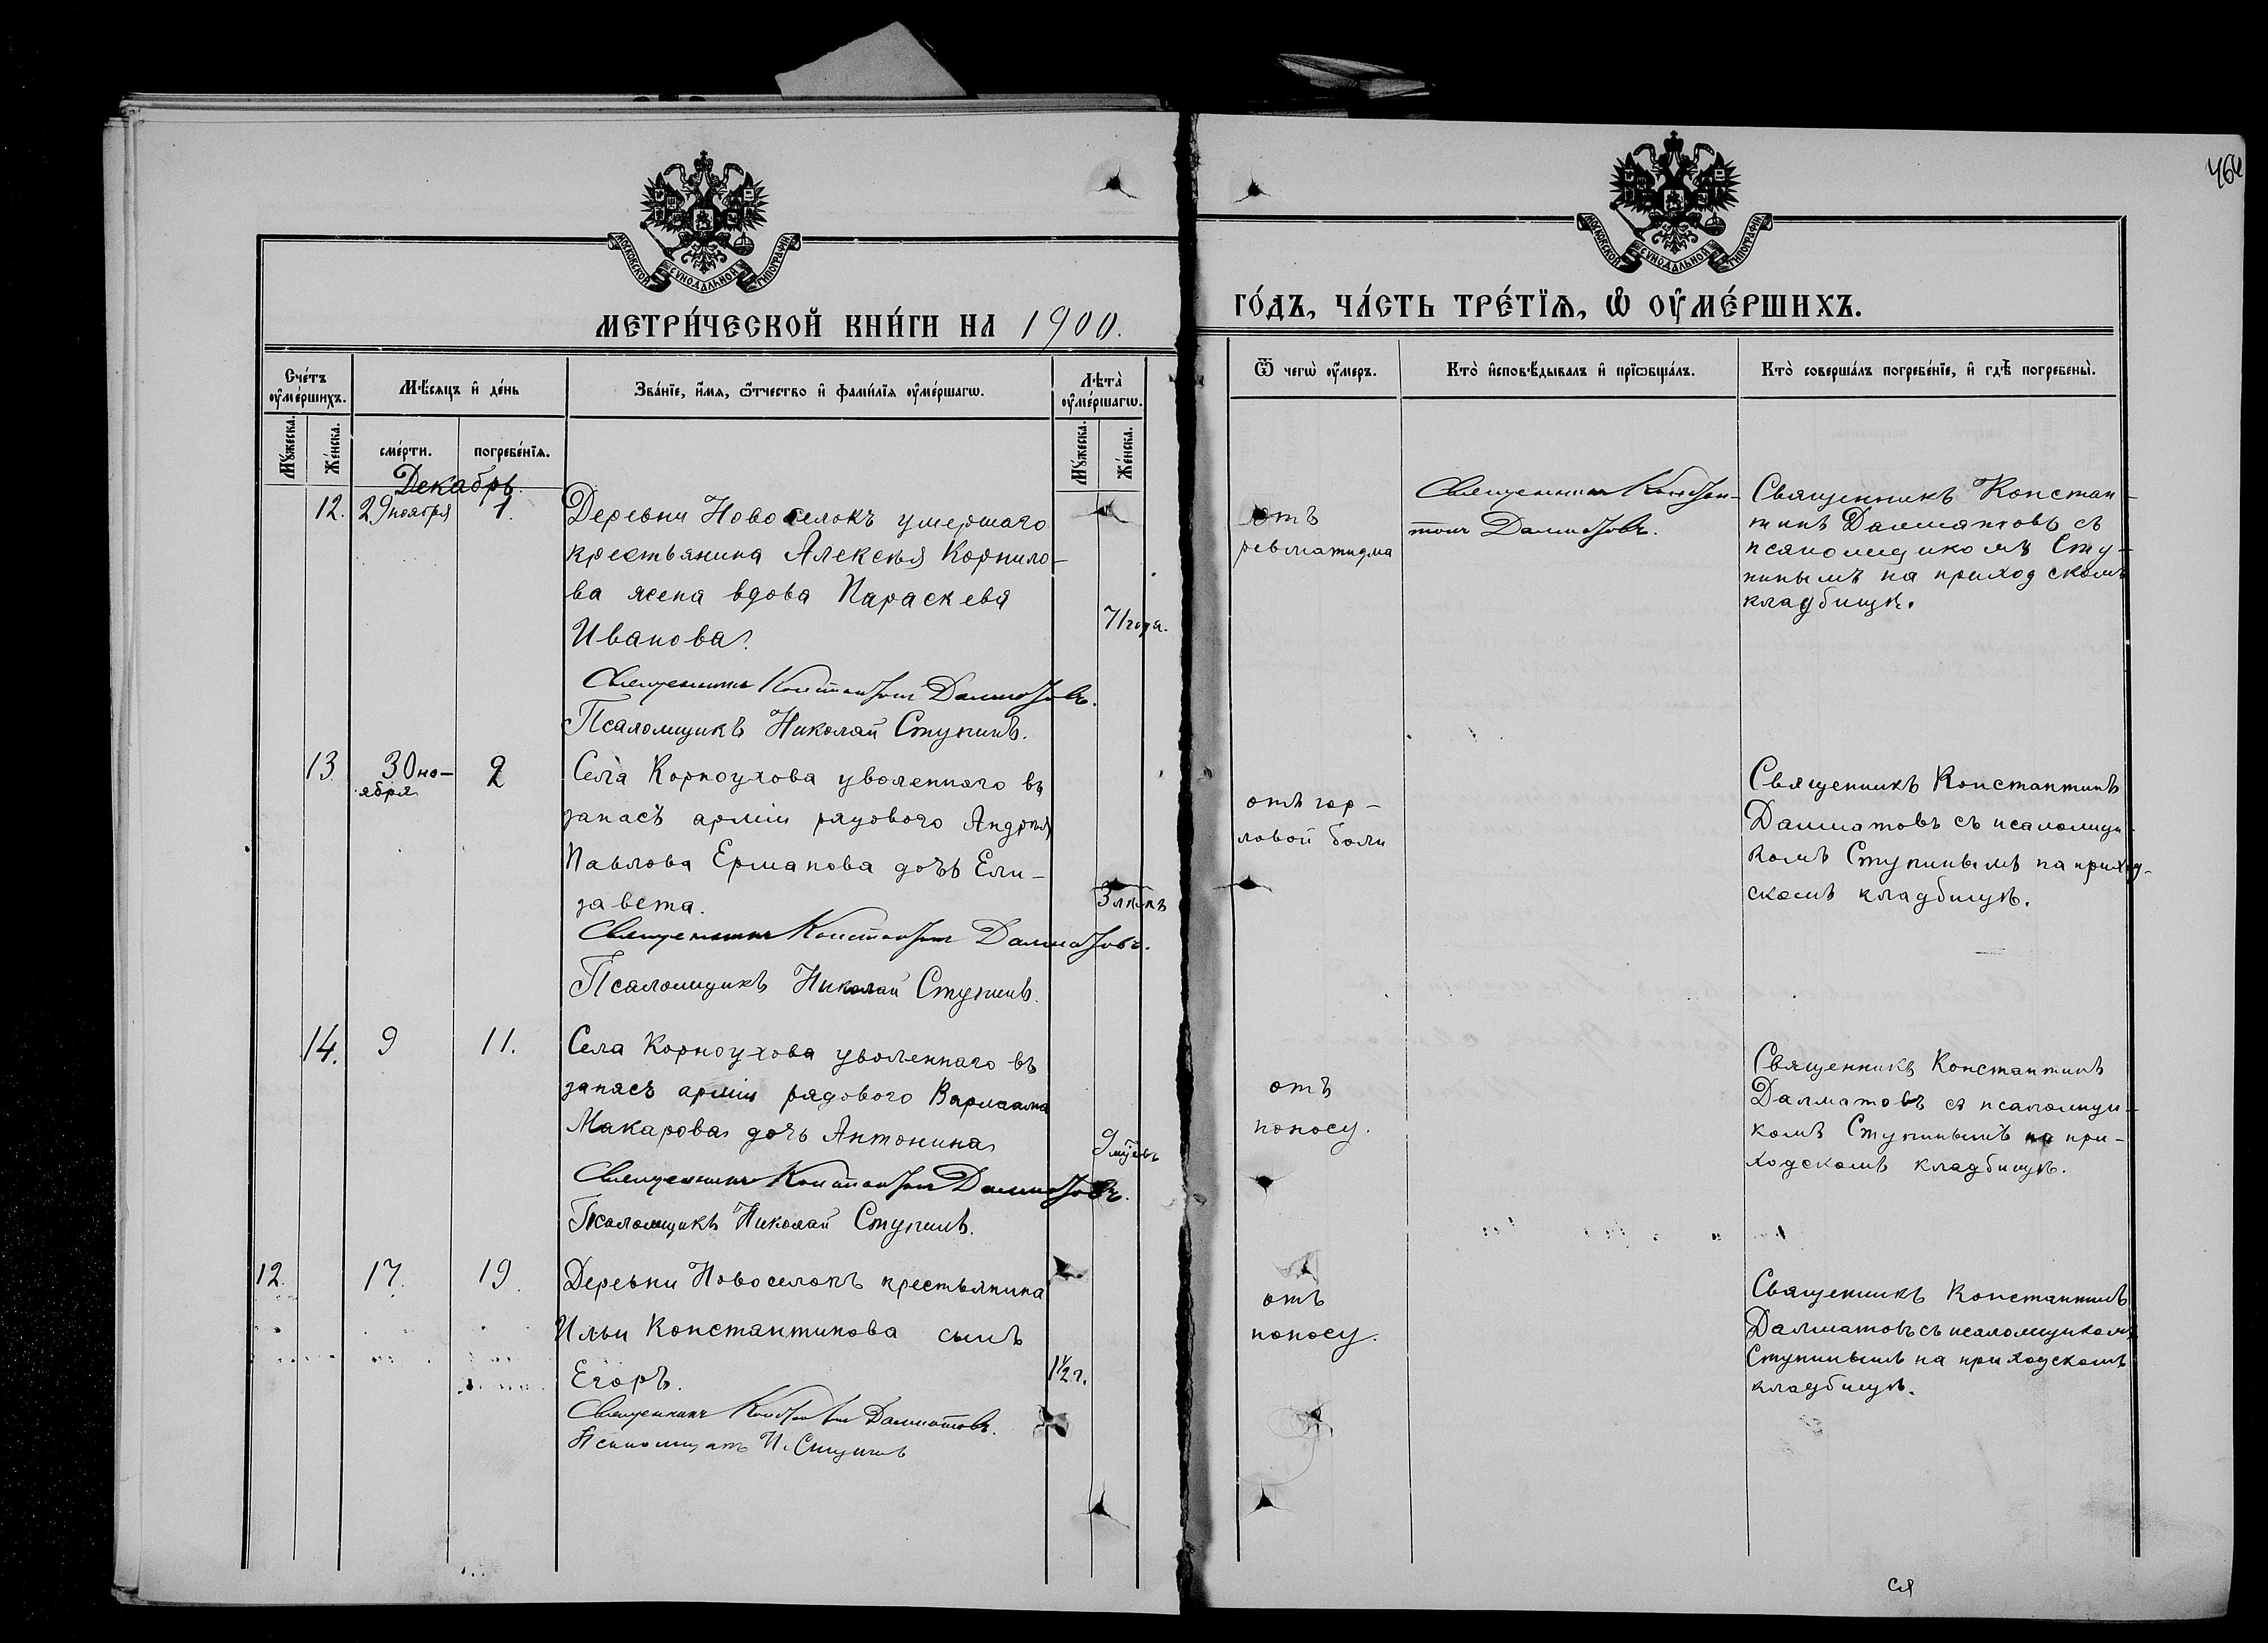 464
МОСКОВСКОЙ СѴНОДАЛЬНОЙ ТИПОГРАФІИ
МОСКОВСКОЙ СѴНОДАЛЬНОЙ ТИПОГРАФІИ
МЕТРИ́ЧЕСКОЙ КНИ́ГИ НА 1900.
ГО́ДЪ, ЧА́СТЬ ТРЕ́ТЇѦ, Ѽ ОУ҆МЕ́РШИХЪ.
Сче́тъ оу҆ме́ршихъ.
Мѣ́сѧцъ и҆ де́нь
Зва́нїе, и҆́мѧ, ѻ҆́тчество и҆ фами́лїѧ оу҆ме́ршагѡ.
Лѣ́та оу҆ме́ршагѡ.
Ѿ чегѡ̀ оу҆́меръ.
Кто̀ и҆сповѣ́дывалъ и҆ прїѡбща́лъ.
Кто̀ соверша́лъ погребе́нїе, и҆ гдѣ̀ погребены̀.
Мꙋ́жеска.
Же́нска.
сме́рти.
погребе́нїѧ.
Мꙋ́жеска.
Же́нска.
Декабрь.
12. 29 ноября 1.
Деревни Новоселокъ умершаго
крестьянина Алексѣя Корнило-
ва жена вдова Параскева
Иванова.
71 года.
Священникъ Константинъ Далматовъ.
Псаломщикъ Николай Ступинъ.
отъ
ревматизма
Священникъ Констан-
тинъ Далматовъ.
Священникъ Констан-
тинъ Далматовъ съ
псаломщикомъ Сту-
пинымъ на приходскомъ
кладбищѣ.
13. 30 но-
ября 2
Села Корноухова уволеннаго въ
запасъ арміи рядового Андрея
Павлова Ермакова дочь Ели-
завета.
3 лѣтъ
Священникъ Константинъ Далматовъ.
Псаломщикъ Николай Ступинъ.
отъ гор-
ловой боли
Священникъ Константинъ
Далматовъ съ псаломщи-
комъ Ступинымъ на приход-
скомъ кладбищѣ.
14. 9 11.
Села Корноухова уволеннаго въ
запасъ арміи рядового Варлаама
Макарова дочь Антонина
9 мѣс-въ
Священникъ Константинъ Далматовъ.
Псаломщикъ Николай Ступинъ.
отъ
поносу.
Священникъ Константинъ
Далматовъ съ псаломщи-
комъ Ступинымъ на при-
ходскомъ кладбищѣ.
12. 17. 19.
Деревни Новоселокъ крестьянина
Ильи Константинова сынъ
Егоръ.
1½ г.
Священникъ Константинъ Далматовъ.
Псаломщикъ Н. Ступинъ
отъ
поносу.
Священникъ Константинъ
Далматовъ съ псаломщикомъ
Ступинымъ на приходскомъ
кладбищѣ.
ся